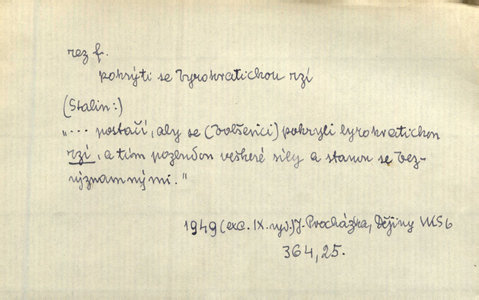 rez f.
pokrýti se byrokratickou rzí
(Stalin:)
"... postačí, aby se (bolševici) pokryli byrokratickou
rzí, a tím pozbudou veškeré síly a stanou se bez-
významnými."
1949 (exc. IX. vyd.) J. Procházka, Dějiny VKSb
364,25.